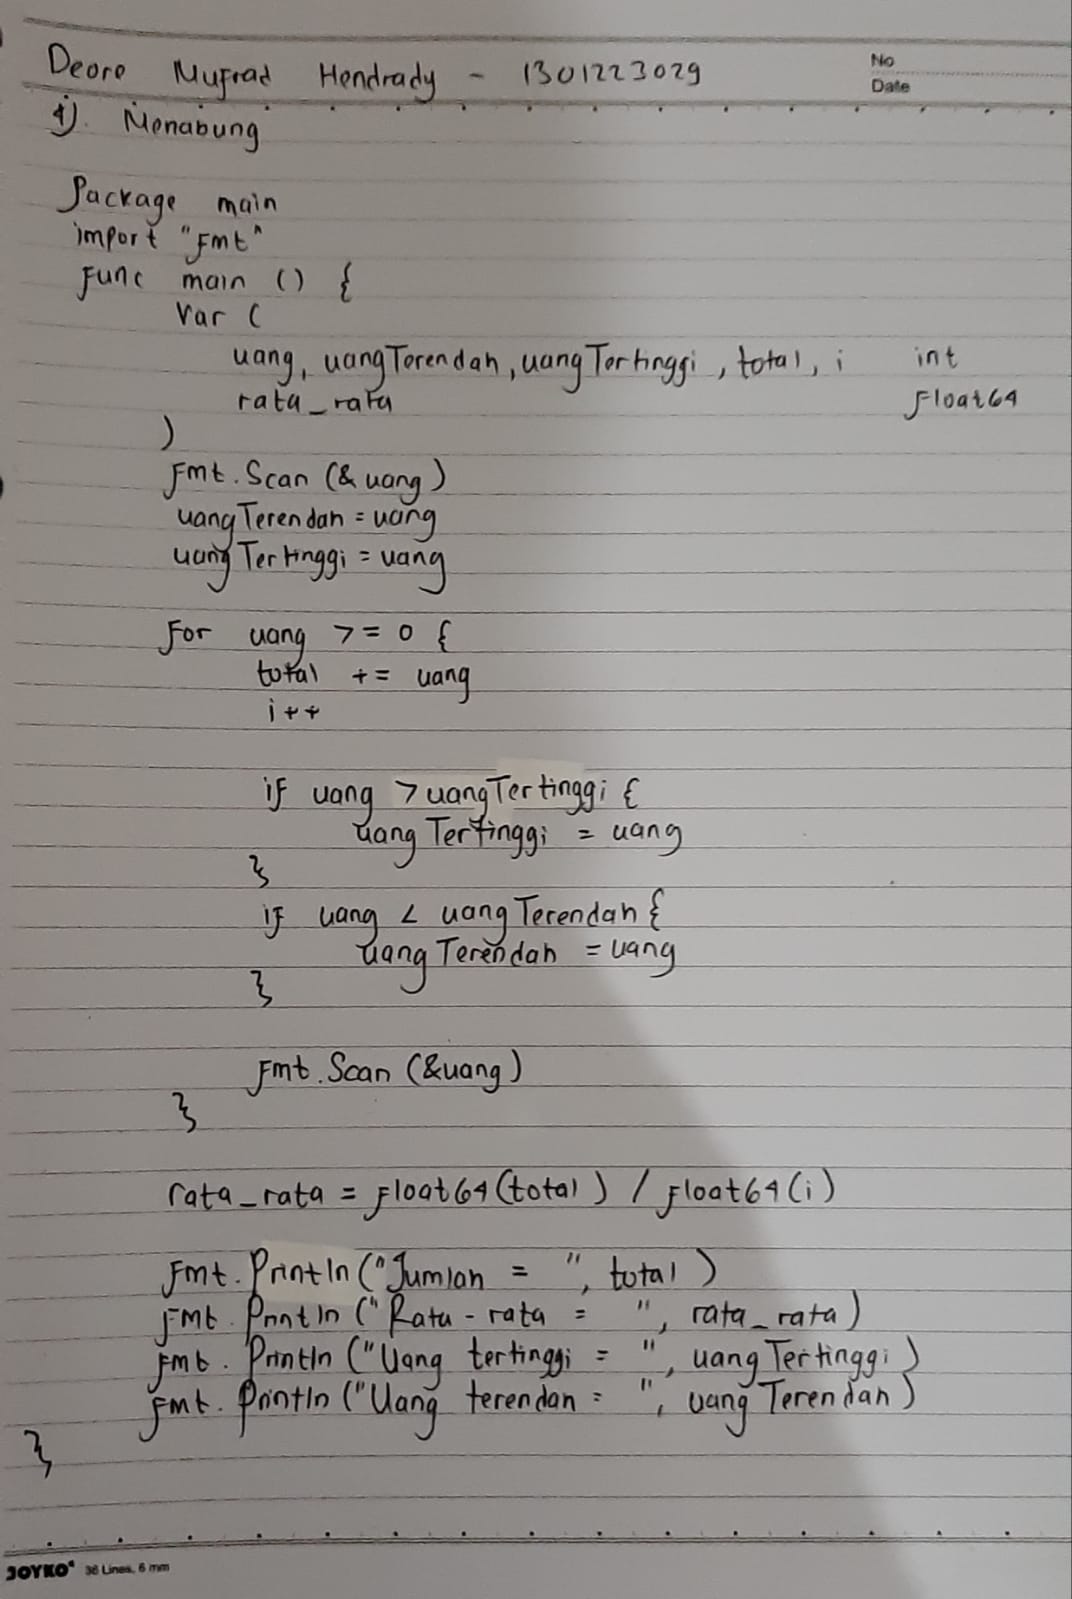 Deoro Mufrad Hendrady - 1301223029
No
Date
1). Menabung
Package main
import "fmt"
func main () {
var (
uang, uangTerendah, uangTertinggi, total, i int
rata_rata float64
)
fmt.Scan (&uang)
uangTerendah = uang
uangTertinggi = uang
for uang >= 0 {
total += uang
i++
if uang > uangTertinggi {
uangTertinggi = uang
}
if uang < uangTerendah {
uangTerendah = uang
}
fmt.Scan (&uang)
}
rata_rata = float64(total) / float64(i)
fmt.Println ("Jumlah = ", total)
fmt.Println ("Rata-rata = ", rata_rata)
fmt.Println ("Uang tertinggi = ", uangTertinggi)
fmt.Println ("Uang terendah = ", uangTerendah)
}
JOYKO 36 Lines, 6 mm